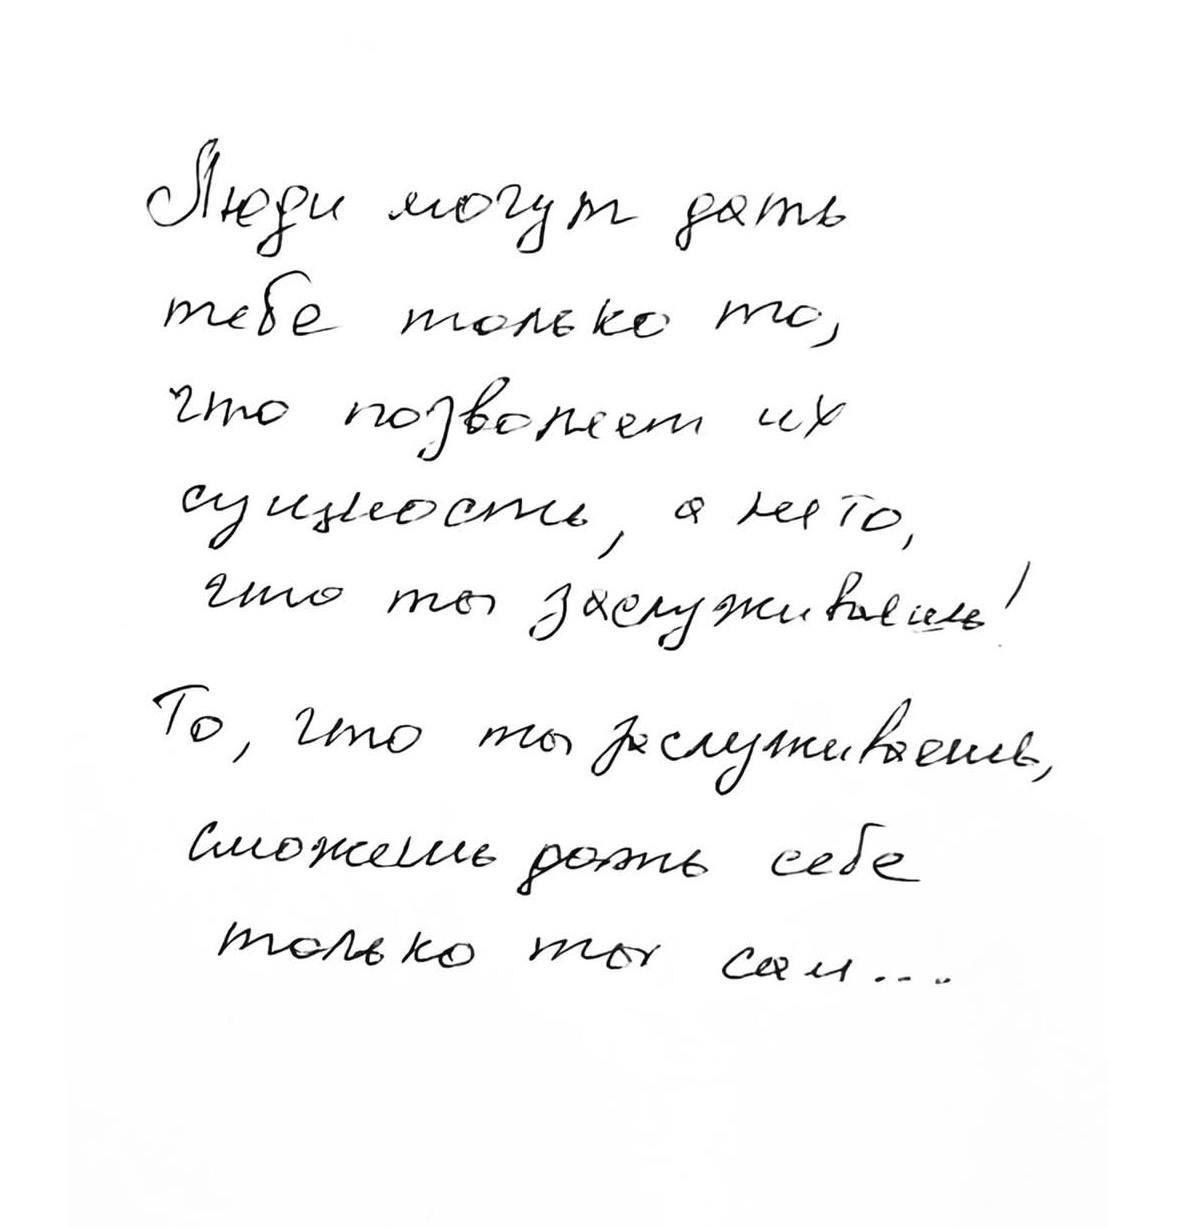 Люди могут дать
тебе только то,
что позволяет их
сущность, а не то,
что ты заслуживаешь!
То, что ты заслуживаешь,
сможешь дать себе
только ты сам....